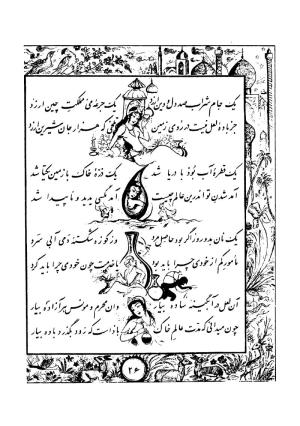 یک جام شراب صد دل و دین ارزد
یک جرعهٔ می مملکت چین ارزد
جز بادهٔ لعل نیست در روی زمین
تلخی که هزار جان شیرین ارزد
یک قطرهٔ آب بود با دریا شد
یک ذرهٔ خاک با زمین یکتا شد
آمد شدن تو اندرین عالم چیست
آمد مگسی پدید و ناپیدا شد
یک نان بدو روز اگر بود حاصل مرد
وز کوزه شکستهٔ دمی آبی سرد
مأمور کم از خودی چرا باید بود
یا خدمت چون خودی چرا باید کرد
آن لعل در آبگینهٔ ساده بیار
وان محرم و مونس هر آزاده بیار
چون میدانی که مدت عالم خاک
بادست که زود بگذرد باده بیار
۲۶